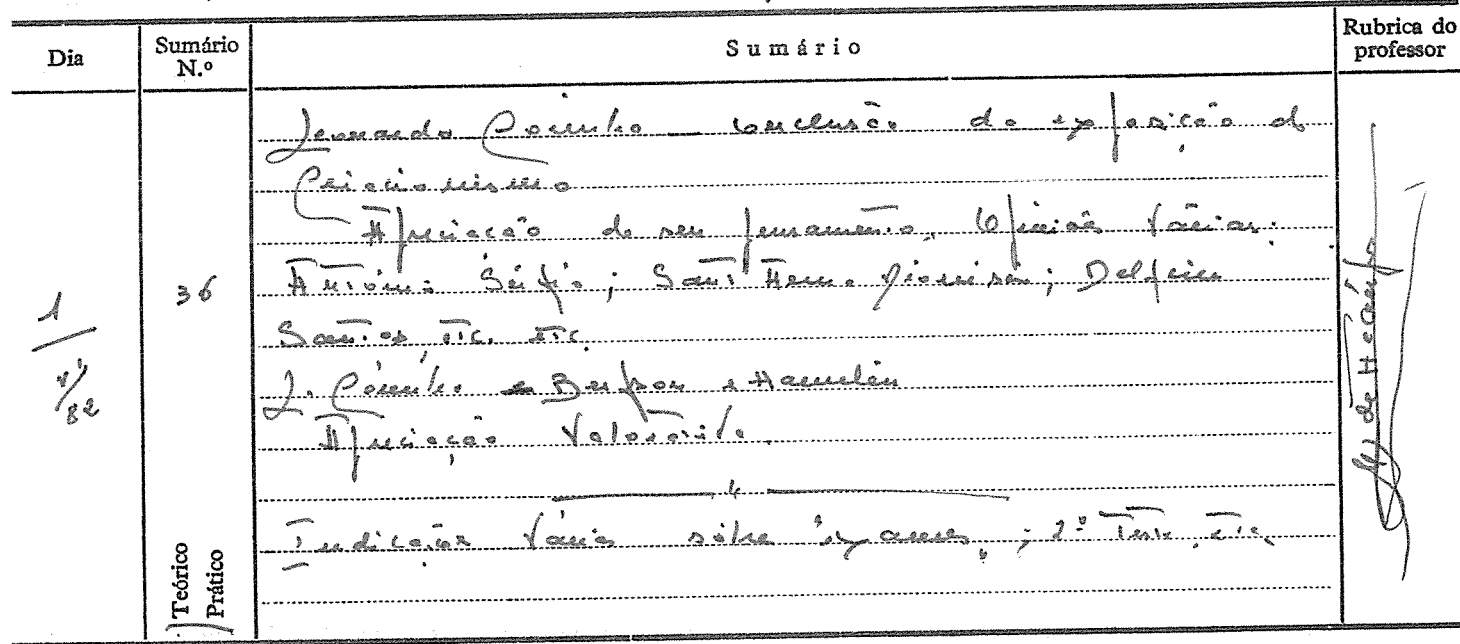 Dia
Sumário N.º
Sumário
Rubrica do professor
1
VI/82
36
Leonardo Coimbra – conclusão da exposição do
Criacionismo
Apreciação do seu pensamento. Opiniões várias:
António Sérgio; Sant'Anna Dionísio; Delfim
Santos etc. etc.
L. Coimbra e Bergson e Hamelin
Apreciação Valorativa.
Indicações várias sôbre exames, 2º Teste, etc.
Teórico
Prático